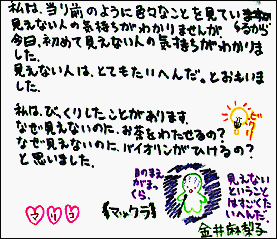 私は、当り前のように色々なことを見ていますから
見えない人の気持ちがわかりませんが、
今日、初めて見えない人の気持ちがわかりま
した。
見えない人は、とてもたいへんだ。とおもいま
した。
私は、びっくりしたことがあります。
なぜ見えないのに、お茶をわたせるの？
なぜ見えないのに、バイオリンがひけるの？
と思いました。
目のまえ
がまっ
くら
《マックラ》
見えない
ということ
はすごくた
いへんだ
金井麻梨子